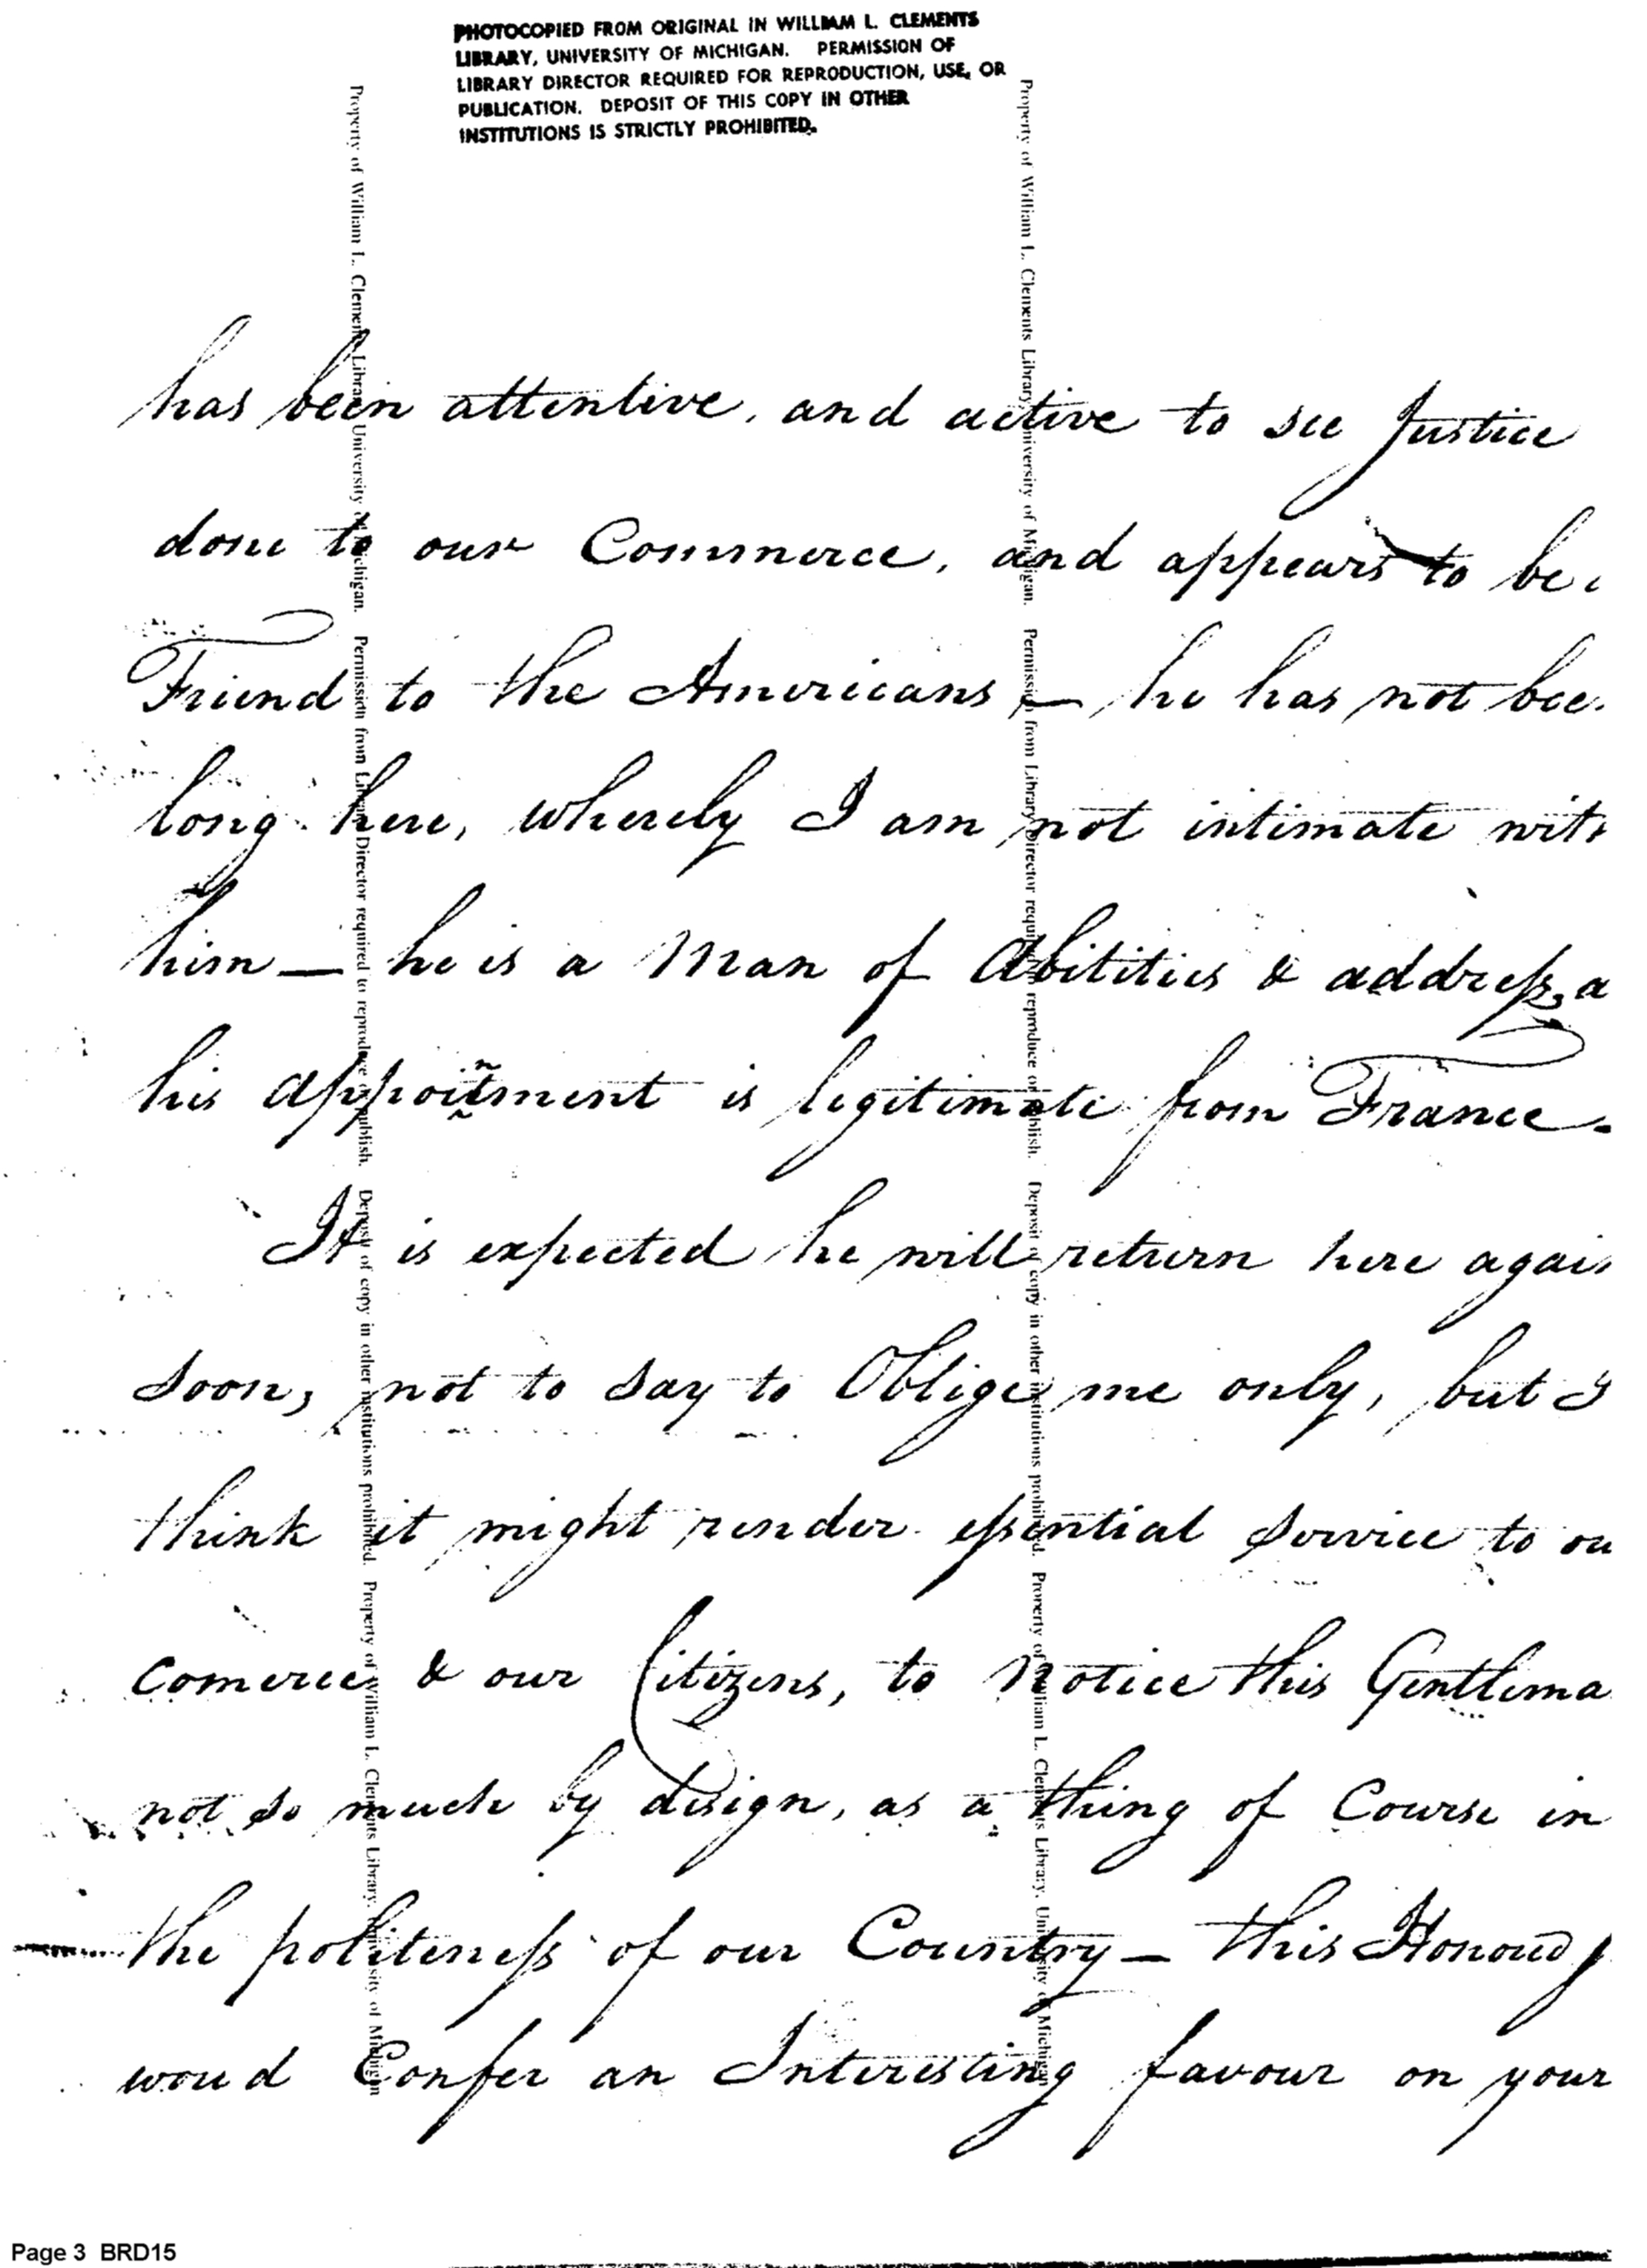 PHOTOCOPIED FROM ORIGINAL IN WILLIAM L. CLEMENTS
LIBRARY, UNIVERSITY OF MICHIGAN. PERMISSION OF
LIBRARY DIRECTOR REQUIRED FOR REPRODUCTION, USE, OR
PUBLICATION. DEPOSIT OF THIS COPY IN OTHER
INSTITUTIONS IS STRICTLY PROHIBITED.
Property of William L. Clements Library, University of Michigan. Permission from Library Director required to reproduce or publish. Deposit of copy in other institutions prohibited. Property of William L. Clements Library, University of Michigan
Property of William L. Clements Library, University of Michigan. Permission from Library Director required to reproduce or publish. Deposit of copy in other institutions prohibited. Property of William L. Clements Library, University of Michigan
has been attentive, and active to see Justice
done to our Commerce, and appears to be
Friend to the Americans — he has not bee
long here, wherely I am not intimate with
him — he is a Man of Abilities & address, a
his appointment is legitimate from France.
It is expected he will return here again
soon, not to say to Oblige me only, but I
think it might render essential Service to ou
comerce & our Citizens, to Notice this Gentlema
not so much by disign, as a thing of Course in
the politeness of our Country — this Honour
woud Confer an Interesting favour on your
Page 3 BRD15